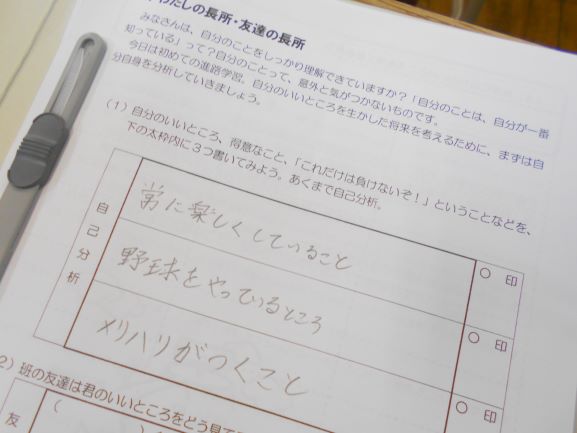 わたしの長所・友達の長所
みなさんは、自分のことをしっかり理解できていますか？「自分のことは、自分が一番
知っている」って？自分のことって、意外と気がつかないものです。
今日は初めての進路学習。自分のいいところを生かした将来を考えるために、まずは自
分自身を分析していきましょう。
（1）自分のいいところ、得意なこと、「これだけは負けないぞ！」ということなどを、
下の太枠内に３つ書いてみよう。あくまで自己分析。
自己分析
常に楽しくしていること
○ 印
野球をやっているところ
○ 印
メリハリがつくこと
○ 印
2）班の友達は君のいいところをどう見て
友
（